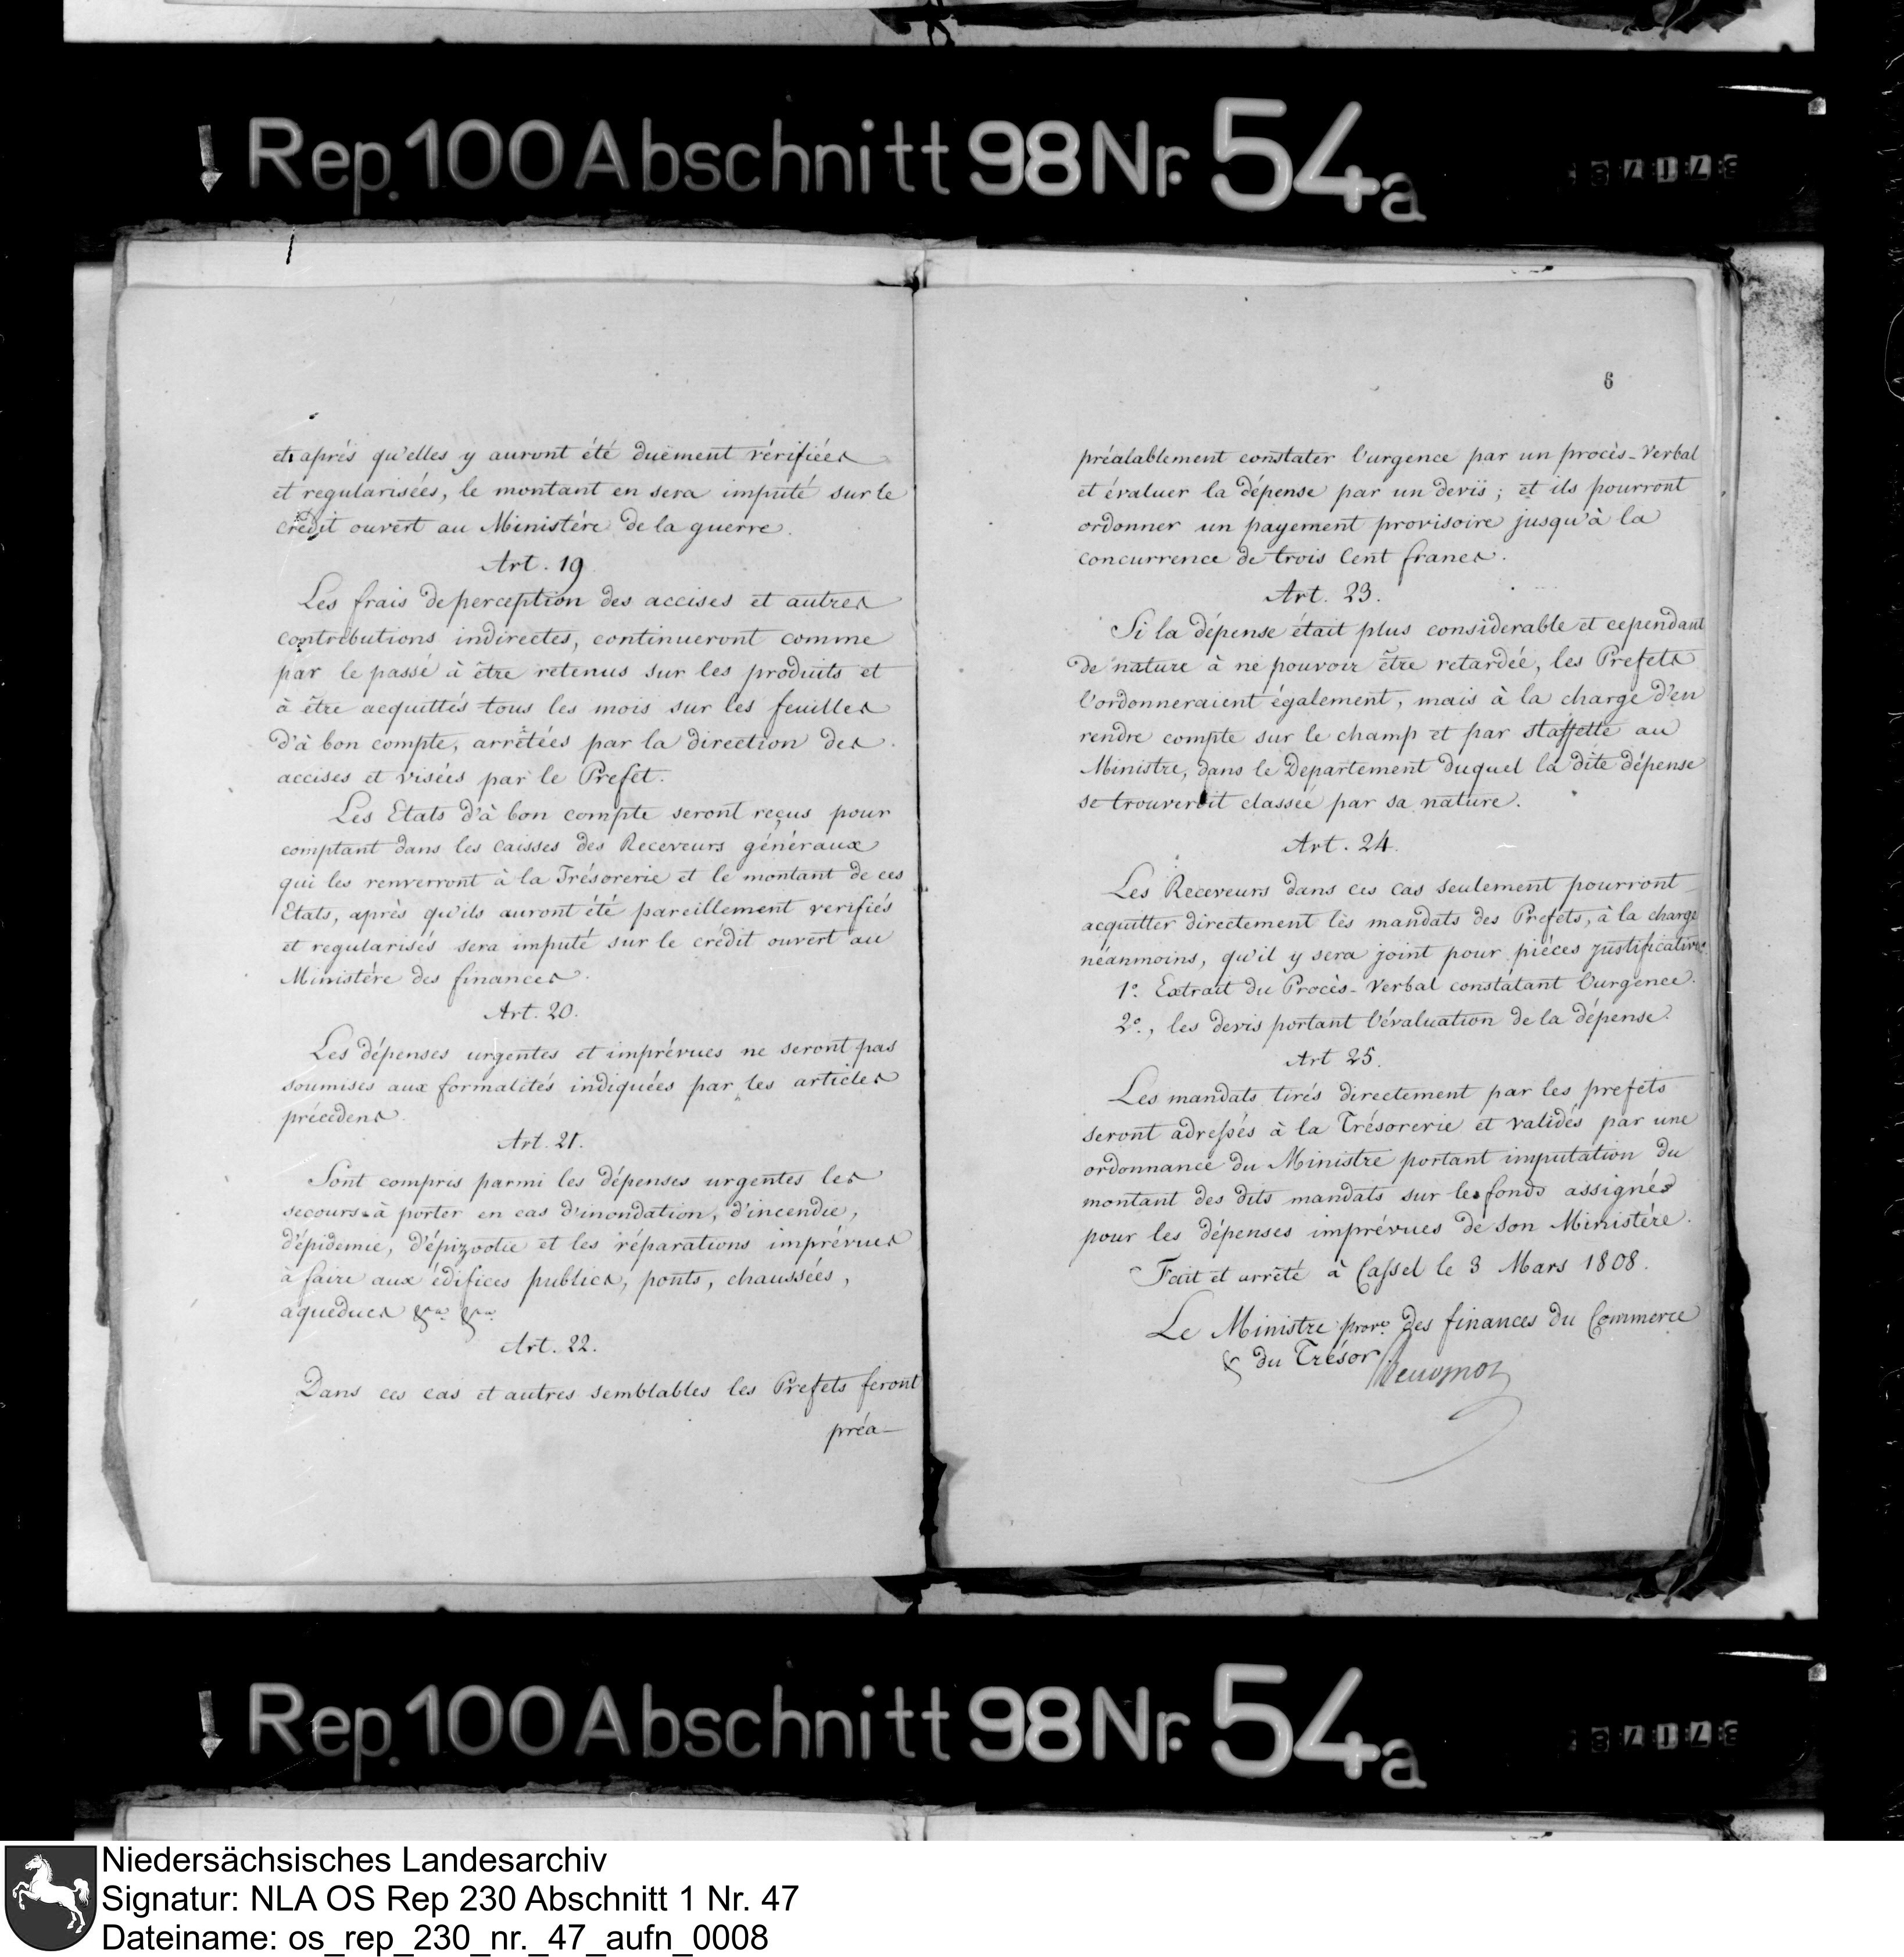 Rep. 100 Abschnitt 98 Nr. 54a
et après qu'elles y auront été duëment vérifiées
et regularisées, le montant en sera imputé sur le
crédit ouvert au Ministére de la guerre.
Art. 19
Les frais de perception des accises et autres
contributions indirectes, continueront comme
par le passé à être retenus sur les produits et
à être acquittés tous les mois sur les feuilles
d'à bon compte, arrêtées par la direction des
accises et visées par le Prefet.
Les Etats d'à bon compte seront reçus pour
comptant dans les caisses des Receveurs généraux
qui les renverront à la Trésorerie et le montant de ces
Etats, après qu'ils auront été pareillement verifiés
et regularisés sera imputé sur le crédit ouvert au
Ministére des finances.
Art. 20.
Les dépenses urgentes et imprévues ne seront pas
soumises aux formalités indiquées par les articles
précedens.
Art. 21.
Sont compris parmi les dépenses urgentes les
secours à porter en cas d'inondation, d'incendie,
d'épidemie, d'épizootie et les réparations imprévues
à faire aux édifices publics, ponts, chaussées,
aqueducs &ca &ca
Art. 22.
Dans ces cas et autres semblables les Prefets feront
préa-
6
préalablement constater l'urgence par un procès-Verbal
et évaluer la dépense par un devis; et ils pourront
ordonner un payement provisoire jusqu'à la
concurrence de trois Cent francs.
Art. 23.
Si la dépense était plus considerable et cependant
de nature à ne pouvoir être retardée, les Prefets
l'ordonneraient également, mais à la charge d'en
rendre compte sur le champ et par staffette au
Ministre, dans le Departement duquel la dite dépense
se trouveroit classée par sa nature.
Art. 24.
Les Receveurs dans ces cas seulement pourront
acquitter directement les mandats des Prefets, à la charge
néanmoins, qu'il y sera joint pour piéces justificatives
1º. Extrait du Procès-Verbal constatant l'urgence.
2º., les devis portant l'évaluation de la dépense.
Art 25.
Les mandats tirés directement par les prefets
seront adressés à la Trésorerie et validés par une
ordonnance du Ministre portant imputation du
montant des dits mandats sur les fonds assignés
pour les dépenses imprévues de son Ministére.
Fait et arrêté à Cassel le 3 Mars 1808.
Le Ministre provre des finances du Commerce
& du Trésor.
Rep. 100 Abschnitt 98 Nr. 54a
Niedersächsisches Landesarchiv
Signatur: NLA OS Rep 230 Abschnitt 1 Nr. 47
Dateiname: os_rep_230_nr._47_aufn_0008